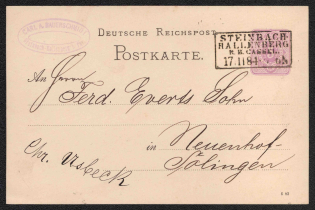 DEUTSCHE REICHSPOST
STEINBACH-
HALLENBERG
R. B. CASSEL.
17.11 84
POSTKARTE.
An Herrn
Ferd. Everts Sohn
in Neuenhof-
Solingen
Chr. Usbeck